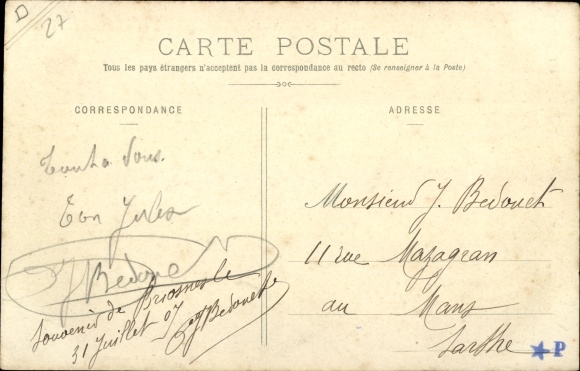 D
27
CARTE POSTALE
Tous les pays étrangers n'acceptent pas la correspondance au recto (Se renseigner à la Poste)
CORRESPONDANCE
Tout à Vous
Ton Jules
J Bedouet
Souvenir de
31 Juillet 07 J Bedouet
ADRESSE
Monsieur J. Bedouet
11 rue Mazagran
au Mans
Sarthe
P